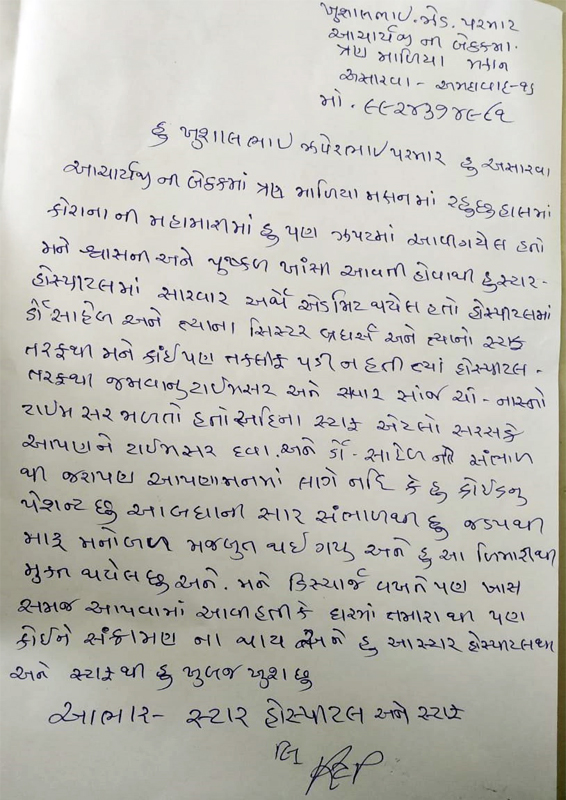 ખુશાલભાઇ. ઝેડ. પરમાર
આચાર્યજી ની બેઠકમા.
ત્રણ માળિયા મકાન
અસારવા - અમદાવાદ-૧૬
મો. ૯૯૨૪૩૭૪૯૮૧
હુ ખુશાલભાઇ ઝવેરભાઇ પરમાર હુ અસારવા
આચાર્યજી ની બેઠકમાં ત્રણ માળિયા મકાનમાં રહુછુ હાલમાં
કોરાના ની મહામારીમાં હુ પણ ઝપટમાં આવીગયેલ હતો
મને શ્વાસની અને પુષ્કળ ખાંસી આવતી હોવાથી હુ સ્ટાર -
હોસ્પીટલમાં સારવાર અર્થે એડમિટ થયેલ હતો હોસ્પીટલમાં
ડૉ સાહેબ અને ત્યાના સિસ્ટર બ્રધર્સ અને ત્યાનો સ્ટાફ
તરફથી મને કાંઈપણ તકલીફ પડી ન હતી ત્યાં હોસ્પીટલ -
તરફથી જમવાનુ ટાઈમસર અને સવાર સાંજ ચા - નાસ્તો
ટાઈમ સર મળતો હતો અહિના સ્ટાફ એટલો સરસકે
આપણને ટાઈમસર દવા. અને ડૉ - સાહેબ ની સંભાળ
થી જરાપણ આપણામનમાં લાગે નહિ કે હુ કોઈકનુ
પેશન્ટ છુ આ બધાની સાર સંભાળથી હુ જડપથી
મારૂ મનોબળ મજબુત થઈ ગયુ અને હુ આ બિમારીથી
મુક્ત થયેલ છુ અને. મને ડિસ્ચાર્જ વખતે પણ ખાસ
સમજ આપવામાં આવી હતી કે ઘરમાં તમારા થી પણ
કોઈને સંક્રામણ ના થાય અને હુ આ સ્ટાર હોસ્પીટલથી
અને સ્ટાફથી હુ ખુબજ ખુશ છુ
આભાર - સ્ટાર હોસ્પીટલ અને સ્ટાફ
લિ